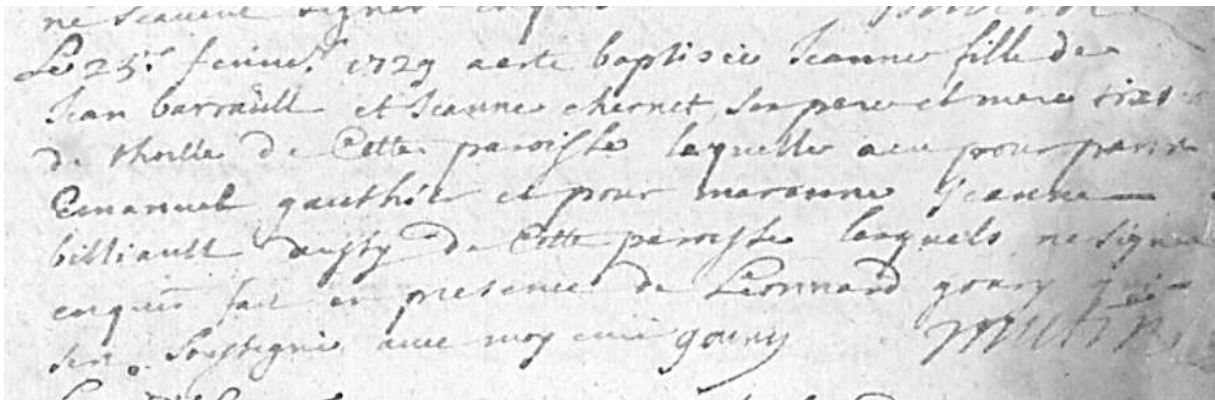 ne scavent signer
Le 25e fevrier 1729 a este baptisée Jeanne fille de
Jean barrault et Jeanne chernet, son pere et mere
de thoille de Cette paroisse laquelle a eu pour parin
Emanuel gauthier et pour maranne Jeanne
billiault aussy de Cette paroisse lesquels ne signe
enquis fait en presence de Leonnard goury qui
soussigné avec moy curé goury